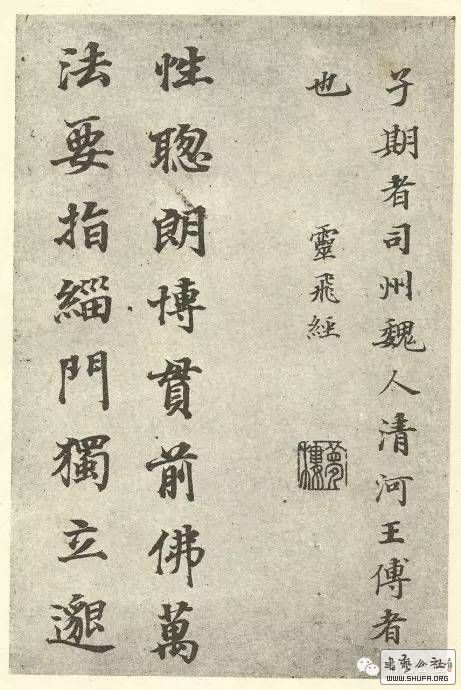 子期者司州魏人清河王傅者
也
靈飛經
夢樓
性聰朗博貫前佛萬
法要指緇門獨立邈
書藝公社
WWW.SHUFA.ORG